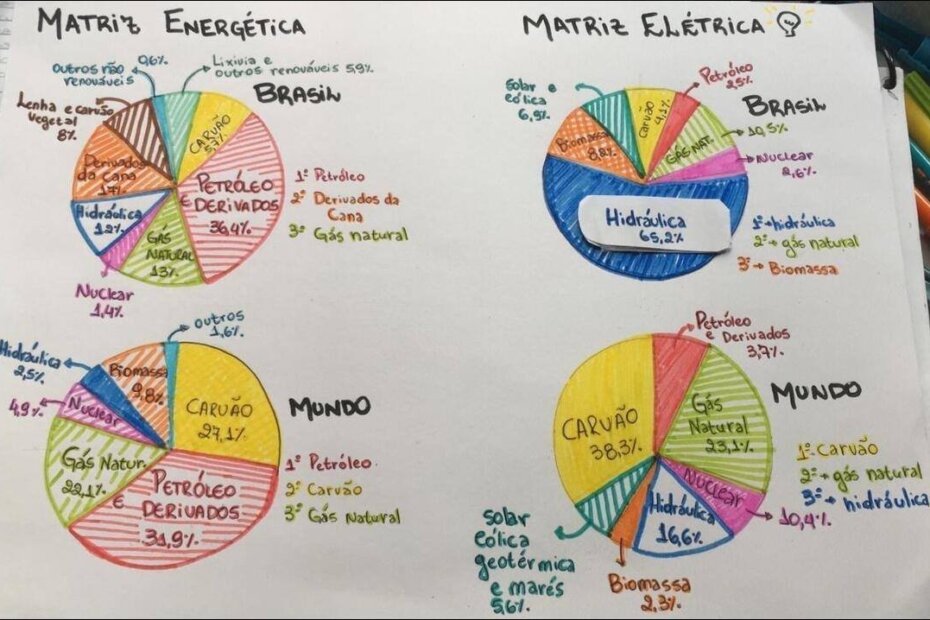 MATRIZ ENERGÉTICA
0,6%
Outros não
renováveis
Lixívia e
outros renováveis 5,9%
BRASIL
Lenha e carvão
vegetal
8%
CARVÃO
5,7%
Derivados
da cana
17%
PETRÓLEO
E DERIVADOS
36,4%
Hidráulica
12%
GÁS
NATURAL
13%
Nuclear
1,4%
1º Petróleo
2º Derivados da
Cana
3º Gás natural
MATRIZ ELÉTRICA
Solar e
eólica
6,9%
Petróleo
2,5%
BRASIL
Carvão
4,1%
Biomassa
8,2%
GÁS NAT.
10,5%
Nuclear
2,6%
Hidráulica
65,2%
1º→hidráulica
2º→gás natural
3º→Biomassa
outros
1,6%
Hidráulica
2,5%
Biomassa
9,8%
4,9%
Nuclear
CARVÃO
27,1%
MUNDO
Gás Natur.
22,1%
PETRÓLEO
E
DERIVADOS
31,9%
1º Petróleo
2º Carvão
3º Gás Natural
Petróleo
e Derivados
3,7%
MUNDO
CARVÃO
38,3%
Gás
Natural
23,1%
Nuclear
10,4%
Hidráulica
16,6%
solar
eólica
geotérmica
e marés
5,6%
Biomassa
2,3%
1º Carvão
2º→gás natural
3º→hidráulica